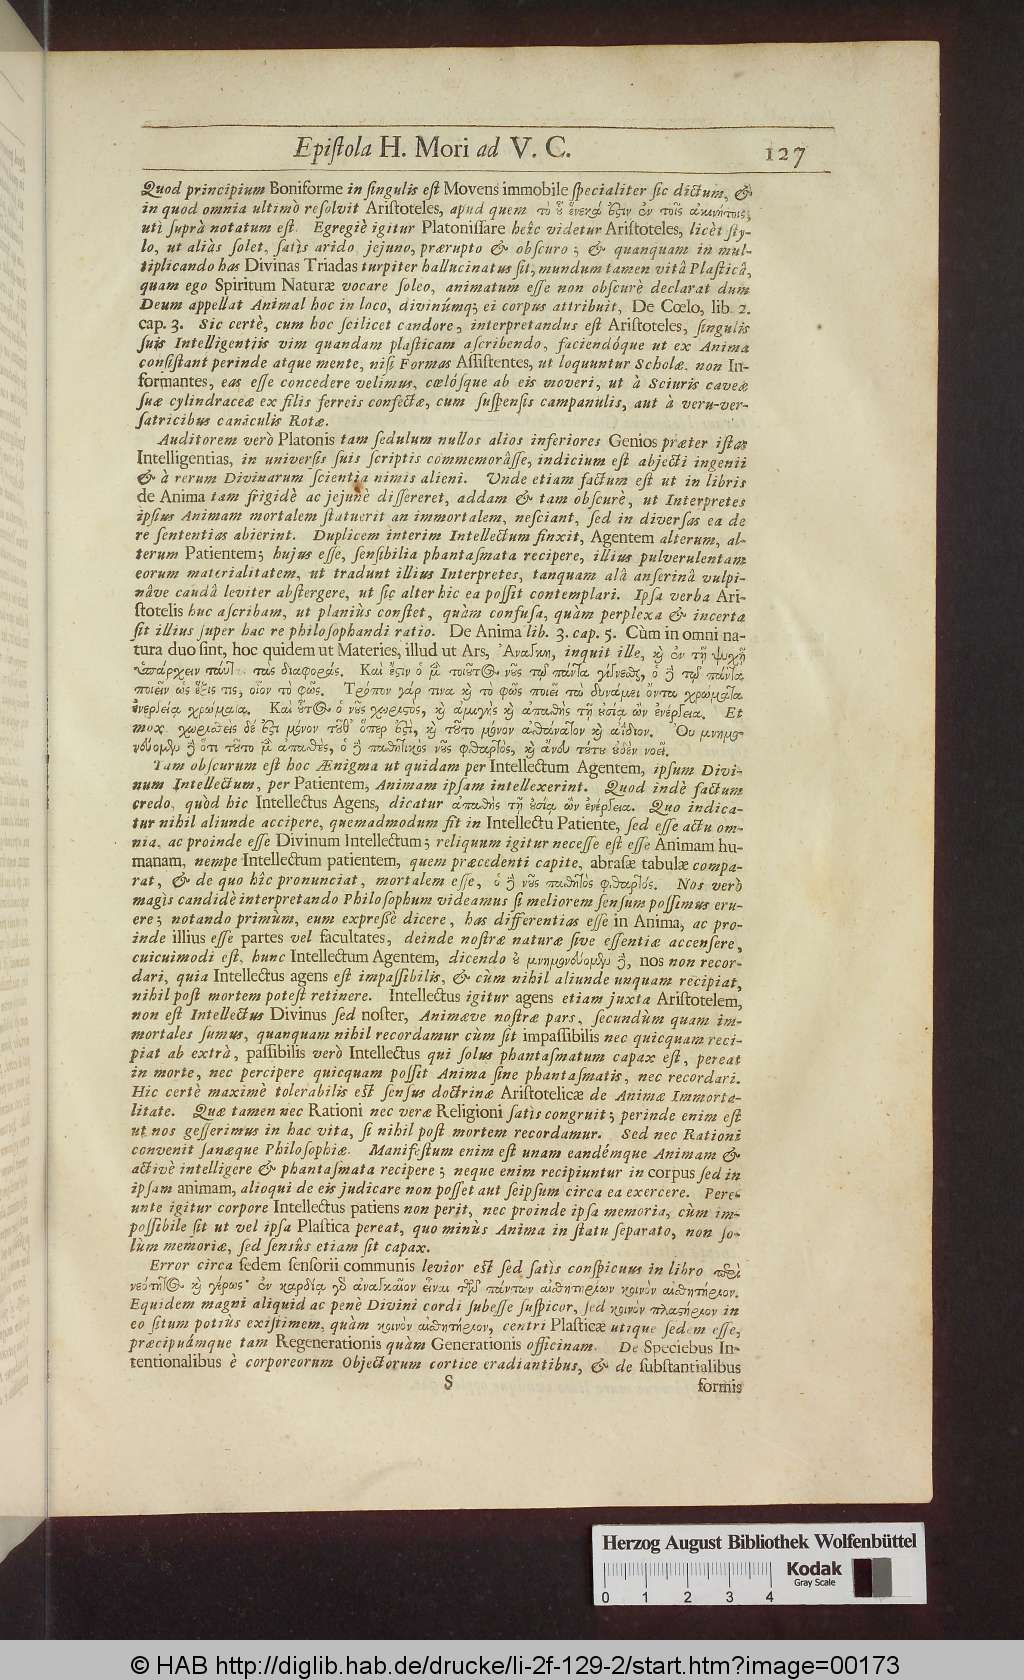 Epistola H. Mori ad V. C. 127
Quod principium Boniforme in singulis est Movens immobile specialiter sic dictum, &
in quod omnia ultimò resolvit Aristoteles, apud quem τὸ οὗ ἕνεκά ἐστιν ἐν τοῖς ἀκινήτοις,
uti suprà notatum est. Egregiè igitur Platonissare heîc videtur Aristoteles, licèt sty-
lo, ut aliàs solet, satis arido, jejuno, prærupto & obscuro; & quanquam in mul-
tiplicando has Divinas Triadas turpiter hallucinatus sit, mundum tamen vitâ Plasticâ,
quam ego Spiritum Naturæ vocare soleo, animatum esse non obscurè declarat dum
Deum appellat Animal hoc in loco, divinúmq; ei corpus attribuit, De Cœlo, lib. 2.
cap. 3. Sic certè, cum hoc scilicet candore, interpretandus est Aristoteles, singulis
suis Intelligentiis vim quandam plasticam ascribendo, faciendóque ut ex Anima
consistant perinde atque mente, nisi Formas Assistentes, ut loquuntur Scholæ, non In-
formantes, eas esse concedere velimus, cœlósque ab eis moveri, ut à Sciuris caveæ
suæ cylindraceæ ex filis ferreis confectæ, cum suspensis campanulis, aut à veru-ver-
satricibus caniculis Rotæ.
Auditorem verò Platonis tam sedulum nullos alios inferiores Genios præter istas
Intelligentias, in universis suis scriptis commemorâsse, indicium est abjecti ingenii
& à rerum Divinarum scientia nimis alieni. Unde etiam factum est ut in libris
de Anima tam frigidè ac jejunè differeret, addam & tam obscurè, ut Interpretes
ipsius Animam mortalem statuerit an immortalem, nesciant, sed in diversas ea de
re sententias abierint. Duplicem interim Intellectum finxit, Agentem alterum, al-
terum Patientem; hujus esse, sensibilia phantasmata recipere, illius pulverulentam
eorum materialitatem, ut tradunt illius Interpretes, tanquam alâ anserinâ vulpi-
nâve caudâ leviter abstergere, ut sic alter hic ea possit contemplari. Ipsa verba Ari-
stotelis huc ascribam, ut planiùs constet, quàm confusa, quàm perplexa & incerta
sit illius super hac re philosophandi ratio. De Anima lib. 3. cap. 5. Cùm in omni na-
tura duo sint, hoc quidem ut Materies, illud ut Ars, Ἀνάγκη, inquit ille, καὶ ἐν τῇ ψυχῇ
ὑπάρχειν ταύτας τὰς διαφοράς. Καὶ ἔστιν ὁ μὲν τοιοῦτος νοῦς τῷ πάντα γίνεσθαι, ὁ δὲ τῷ πάντα
ποιεῖν ὡς ἕξις τις, οἷον τὸ φῶς. Τρόπον γάρ τινα καὶ τὸ φῶς ποιεῖ τὰ δυνάμει ὄντα χρώματα
ἐνεργείᾳ χρώματα. Καὶ οὗτος ὁ νοῦς χωριστὸς, καὶ ἀμιγὴς καὶ ἀπαθὴς τῇ οὐσίᾳ ὢν ἐνέργεια. Et
mox χωρισθεὶς δέ ἐστι μόνον τοῦθ' ὅπερ ἐστὶ, καὶ τοῦτο μόνον ἀθάνατον καὶ ἀΐδιον. Οὐ μνημο-
νεύομεν δὲ ὅτι τοῦτο μὲν ἀπαθὲς, ὁ δὲ παθητικὸς νοῦς φθαρτὸς, καὶ ἄνευ τούτου οὐδὲν νοεῖ.
Tam obscurum est hoc Ænigma ut quidam per Intellectum Agentem, ipsum Divi-
num Intellectum, per Patientem, Animam ipsam intellexerint. Quod indè factum
credo, quòd hic Intellectus Agens, dicatur ἀπαθὴς τῇ οὐσίᾳ ὢν ἐνέργεια. Quo indica-
tur nihil aliunde accipere, quemadmodum fit in Intellectu Patiente, sed esse actu om-
nia, ac proinde esse Divinum Intellectum; reliquum igitur necesse est esse Animam hu-
manam, nempe Intellectum patientem, quem præcedenti capite, abrasæ tabulæ compa-
rat, & de quo hîc pronunciat, mortalem esse, ὁ δὲ νοῦς παθητὸς φθαρτός. Nos verò
magis candidè interpretando Philosophum videamus si meliorem sensum possimus eru-
ere; notando primùm, eum expressè dicere, has differentias esse in Anima, ac pro-
inde illius esse partes vel facultates, deinde nostræ naturæ sive essentiæ accensere,
cuicuimodi est, hunc Intellectum Agentem, dicendo οὐ μνημονεύομεν δὲ, nos non recor-
dari, quia Intellectus agens est impassibilis, & cùm nihil aliunde unquam recipiat,
nihil post mortem potest retinere. Intellectus igitur agens etiam juxta Aristotelem,
non est Intellectus Divinus sed noster, Animæve nostræ pars, secundùm quam im-
mortales sumus, quanquam nihil recordamur cùm sit impassibilis nec quicquam reci-
piat ab extrà, passibilis verò Intellectus qui solus phantasmatum capax est, pereat
in morte, nec percipere quicquam possit Anima sine phantasmatis, nec recordari.
Hic certè maximè tolerabilis est sensus doctrinæ Aristotelicæ de Animæ Immorta-
litate. Quæ tamen nec Rationi nec veræ Religioni satis congruit; perinde enim est
ut nos gesserimus in hac vita, si nihil post mortem recordamur. Sed nec Rationi
convenit sanæque Philosophiæ. Manifestum enim est unam eandémque Animam &
activè intelligere & phantasmata recipere; neque enim recipiuntur in corpus sed in
ipsam animam, alioqui de eis judicare non posset aut seipsum circa ea exercere. Pere-
unte igitur corpore Intellectus patiens non perit, nec proinde ipsa memoria, cùm im-
possibile sit ut vel ipsa Plastica pereat, quo minùs Anima in statu separato, non so-
lùm memoriæ, sed sensûs etiam sit capax.
Error circa sedem sensorii communis levior est sed satis conspicuus in libro περὶ
νεότητος καὶ γέρως· ἐν καρδίᾳ γὰρ ἀναγκαῖον εἶναι τῶν πάντων αἰσθητηρίων κοινὸν αἰσθητήριον.
Equidem magni aliquid ac penè Divini cordi subesse suspicor, sed κοινὸν πλαστήριον in
eo situm potiùs existimem, quàm κοινὸν αἰσθητήριον, centri Plasticæ utique sedem esse,
præcipuámque tam Regenerationis quàm Generationis officinam. De Speciebus In-
tentionalibus è corporeorum Objectorum cortice eradiantibus, & de substantialibus
S formis
Herzog August Bibliothek Wolfenbüttel
Kodak
Gray Scale
0 1 2 3 4
© HAB http://diglib.hab.de/drucke/li-2f-129-2/start.htm?image=00173